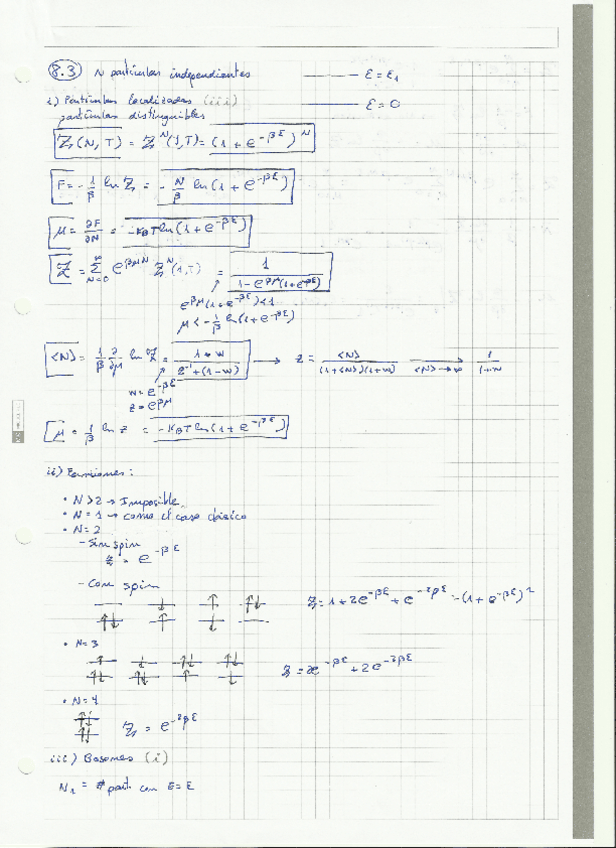 8.3) N partículas independientes ——— ε = ε₁
i) Partículas localizadas (iii) ——— ε = 0
partículas distinguibles
Z(N, T) = Z^N(1,T) = (1 + e^{-βε})^N
F = -1/β ln Z = -N/β ln(1 + e^{-βε})
μ = ∂F/∂N = -K_BT ln(1 + e^{-βε})
Z = Σ_{N=0}^∞ e^{βμN} Z^N(1,T) = 1/(1 - e^{βμ}(1+e^{-βε}))
e^{βμ}(1+e^{-βε}) < 1
μ < -1/β ln(1+e^{-βε})
⟨N⟩ = 1/β ∂/∂μ ln Z = (1+w)/(z^{-1}+(1-w)) → z = ⟨N⟩/((1+⟨N⟩)(1+w)) →_{⟨N⟩→∞} 1/(1+w)
w = e^{-βε}
z = e^{βμ}
μ = 1/β ln z = -K_BT ln(1 + e^{-βε})
ii) Fermiones:
• N>2 → Imposible
• N = 1 → como el caso clásico
• N = 2
- Sin spin
Z = e^{-βε}
- Con spin
Z = 1 + 2e^{-βε} + e^{-2βε} - (1 + e^{-βε})²
• N = 3
Z = 2e^{-βε} + 2e^{-2βε}
• N = 4
Z = e^{-2βε}
iii) Bosones (i)
N₁ = # part. con E = ε